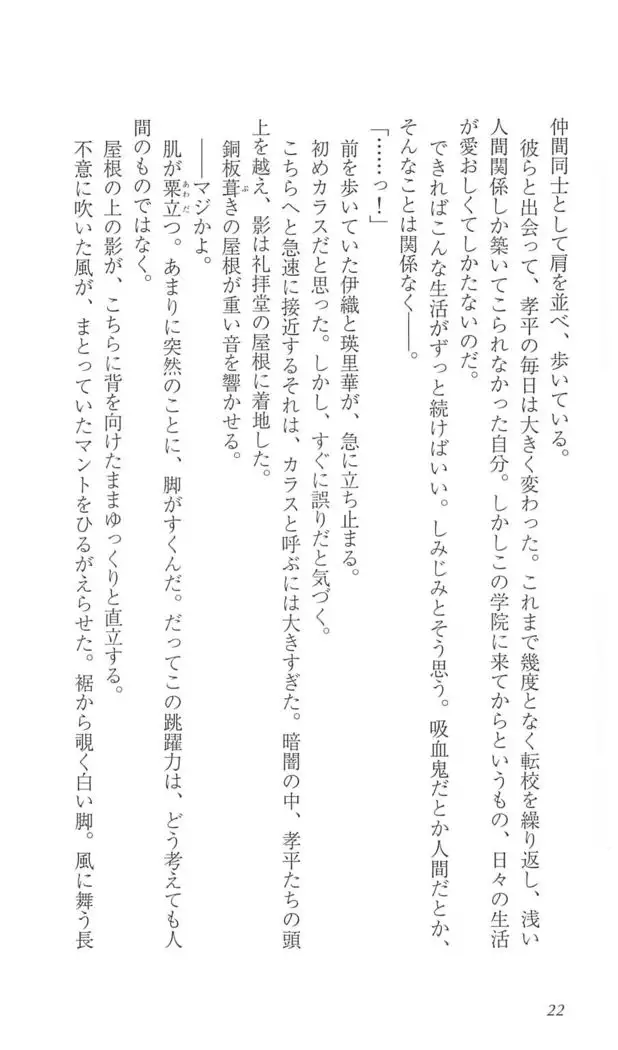 仲間同士として肩を並べ、歩いている。
彼らと出会って、孝平の毎日は大きく変わった。これまで幾度となく転校を繰り返し、浅い
人間関係しか築いてこられなかった自分。しかしこの学院に来てからというもの、日々の生活
が愛おしくてしかたないのだ。
できればこんな生活がずっと続けばいい。しみじみとそう思う。吸血鬼だとか人間だとか、
そんなことは関係なく――。
「……っ！」
前を歩いていた伊織と瑛里華が、急に立ち止まる。
初めカラスだと思った。しかし、すぐに誤りだと気づく。
こちらへと急速に接近するそれは、カラスと呼ぶには大きすぎた。暗闇の中、孝平たちの頭
上を越え、影は礼拝堂の屋根に着地した。
銅板葺ぶきの屋根が重い音を響かせる。
――マジかよ。
肌が粟立あわだつ。あまりに突然のことに、脚がすくんだ。だってこの跳躍力は、どう考えても人
間のものではなく。
屋根の上の影が、こちらに背を向けたままゆっくりと直立する。
不意に吹いた風が、まとっていたマントをひるがえらせた。裾から覗く白い脚。風に舞う長
22